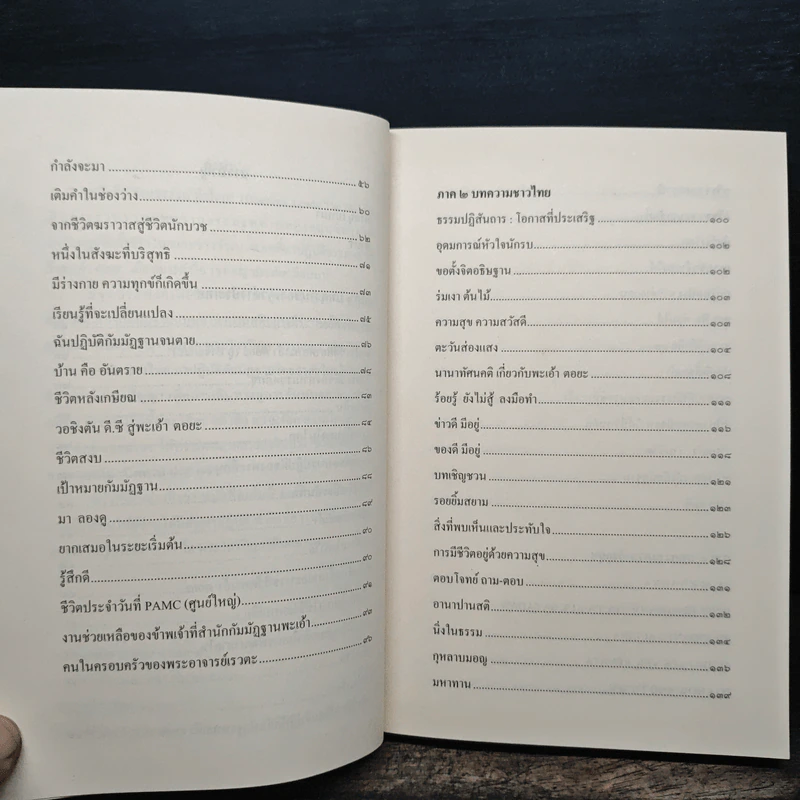 กำลังจะมา ๕๖
เติมคำในช่องว่าง ๖๐
จากชีวิตฆราวาสสู่ชีวิตนักบวช ๖๒
หนึ่งในสังฆะที่บริสุทธิ์ ๗๑
มีร่างกาย ความทุกข์ก็เกิดขึ้น ๗๓
เรียนรู้ที่จะเปลี่ยนแปลง ๗๕
ฉันปฏิบัติกัมมัฏฐานจนตาย ๗๖
บ้าน คือ อันตราย ๗๘
ชีวิตหลังเกษียณ ๘๓
วอชิงตัน ดี.ซี สู่พะเอ้า ตอยะ ๘๕
ชีวิตสงบ ๘๖
เป้าหมายกัมมัฏฐาน ๘๘
มา ลองดู ๘๙
ยากเสมอในระยะเริ่มต้น ๙๐
รู้สึกดี ๙๐
ชีวิตประจำวันที่ PAMC (ศูนย์ใหญ่) ๙๑
งานช่วยเหลือของข้าพเจ้าที่สำนักกัมมัฏฐานพะเอ้า ๙๓
คนในครอบครัวของพระอาจารย์เรวตะ ๙๖
ภาค ๒ บทความชาวไทย
ธรรมปฏิสันถาร : โอกาสที่ประเสริฐ ๑๐๐
อุดมการณ์หัวใจนักรบ ๑๐๒
ขอตั้งจิตอธิษฐาน ๑๐๒
ร่มเงา ต้นไม้ ๑๐๓
ความสุข ความสวัสดี ๑๐๓
ตะวันส่องแสง ๑๐๕
นานาทัศนคติ เกี่ยวกับพะเอ้า ตอยะ ๑๐๘
ร้อยรู้ ยังไม่สู้ ลงมือทำ ๑๑๑
ข่าวดี มีอยู่ ๑๑๖
ของดี มีอยู่ ๑๑๘
บทเชิญชวน ๑๒๑
รอยยิ้มสยาม ๑๒๓
สิ่งที่พบเห็นและประทับใจ ๑๒๖
การมีชีวิตอยู่ด้วยความสุข ๑๒๘
ตอบโจทย์ ถาม-ตอบ ๑๓๑
อานาปานสติ ๑๓๒
นิ่งในธรรม ๑๓๕
กุหลาบมอญ ๑๓๖
มหาทาน ๑๓๙